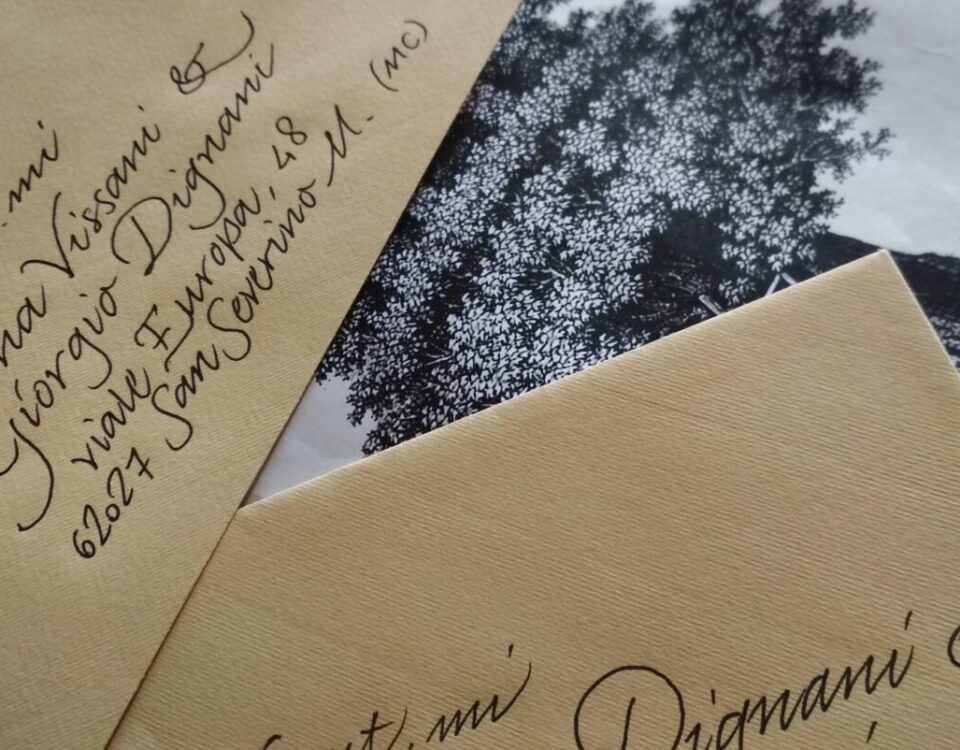 .mi
na Vissani &
Giorgio Dignani
viale Europa, 48
62027 San Severino M. (MC)
t.mi
Dignani